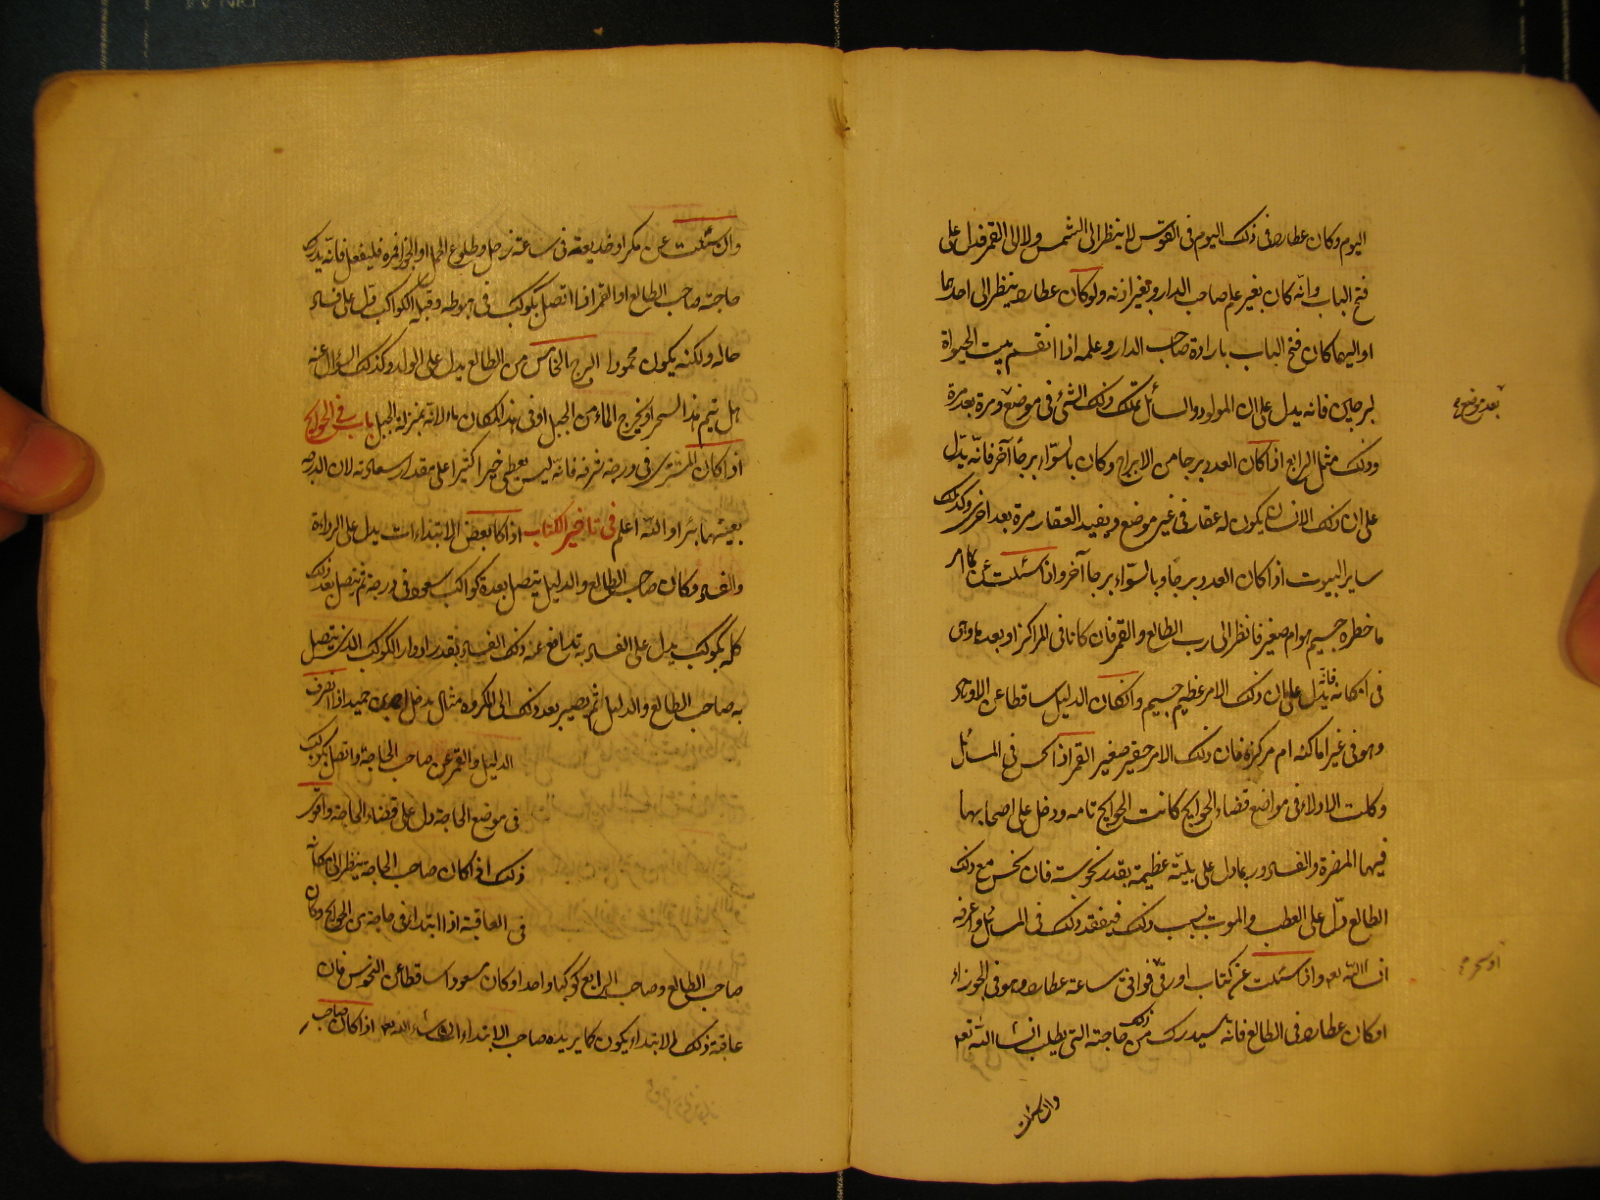 اليوم وكان عطارد فى ذلك اليوم فى القوس لا ينظر الى الشمس ولا الى القمر فدل على
فتح الباب وانّه كان بغير علم صاحب الدار وبغير اذنه ولو كان عطارد ينظر الى احدهما
او اليهما كان فتح الباب بارادة صاحب الدار وعلمه اذا انقسم بيت الحيوة
لبرجين فانه يدل على ان المولود والسائل تملك ذلك الشئ فى موضع ومرة بعد مرة
بعد موضع
وذلك مثل الرابع اذا كان العدد برجا من الابراج وكان بالسوّاء برجًا آخر فانّه يدّل
على ان ذلك الانسان يكون له عقار فى غير موضع ويفيد العقار مرة بعد اخرى وكذلك
ساير البيوت اذا كان العدد برجًا وبالسوّاء برجا آخر واذا سئلت عن امر
ما خطره جسيم هو ام صغير فانظر الى رب الطالع والقمر فان كانا فى المراكز او بعد ما وى
فى امكانه فانّه يدّل على ان ذلك الامر عظيم جسيم وان كان الدليل ساقطا عن الاوتاد
وهو فى غير اماكنه ام مركزه فان ذلك الامر حقير صغير القمر اذا نحس فى المسائل
وكانت الاولاد فى مواضع قضاء الحوايج كانت الحوايج تامه ودخل على اصحابها
فيها المضرة والفساد وربما دل على بليّة عظيمة بقدر نحوسته فان نحس مع ذلك
الطالع دلّ على العطب والموت بسبب ذلك فيفقد ذلك فى المسائل واعرفه
ان شاء اللّه تعه واذا سئلت عن كتاب او رقى فوافق ساعة عطارد وهو فى الجوزاء
او سحر
او كان عطارد فى الطالع فانّه سيدرك من ذلك حاجته التى يطلب انشا اللّه تعه
وان سئلت
وان سئلت عن مكر او خديعة فى ساعة زحل وطلوع الحمل او الجوزا فمره فليفعل فانّه يدرك
حاجته صاحب الطالع او القمر اذا اتصل بكوكب فى هبوطه وقبله الكواكب دلّ على فساد
حاله ولكنه يكون محمودا البرج الخامس من الطالع يدل على الولد وكذلك السؤال عنه
هل يتم هذا السحر او يخرج الماء من الجبل او فى هذا المكان ماء لانّه بمنزلة الجبل باب فى الحوايج
اذا كان المشترى فى درجة شرفه فانّه ليس يعطى خيرا كثيرا على مقدار سعادته لان الدرجة
بعينها بئر او اللّه اعلم فى تاخير الكتاب اذا كان بعض الابتداءات يدل على الرداءة
والفساد وكان صاحب الطالع والدليل يتصل بعدة كواكب سعود فى درجة ثم يتصل بعد ذلك
كله بكوكب يدل على الفساد به تدافع عنه ذلك الفساد بقدر ادوار الكوكب الذى يتصل
به صاحب الطالع والدليل ثم يصير بعد ذلك الى المكروه مثال اذا انصرف
الدليل والقمر عن صاحب الحاجة واتصل بكوكب
فى موضع الحاجة دل على قضاء الحاجة واقوى
ذلك اذا كان صاحب الحاجة ينظر الى مكانه
فى العاقبة اذا ابتدأت فى حاجة من الحوايج وكان
صاحب الطالع وصاحب الرابع كوكبا واحدا وكان مسعودا ساقطا عن النحوس فان
عاقبة ذلك الابتداء يكون كما يريده صاحب الابتداء ان شاء اللّه تعه اذا كان صاحب